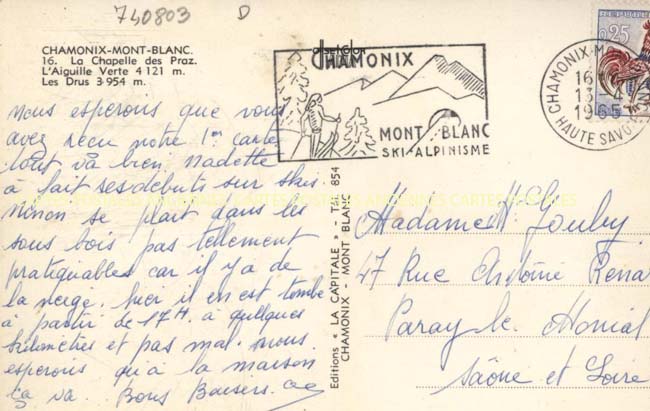 740803 D
CHAMONIX-MONT-BLANC.
16. La Chapelle des Praz.
L'Aiguille Verte 4 121 m.
Les Drus 3 954 m.
nous esperons que vous
avez recu notre 1er carte
tout va bien. nadette
a fait ses debuts sur skis.
ninon se plait dans les
sous bois pas tellement
pratiquables car il y a de
la neige. hier il en est tombé
à partir de 17H à quelques
kilomètres et pas mal. nous
esperons qu'à la maison
ça va. Bons Baisers.
Editions « LA CAPITALE » - Tél. 854
CHAMONIX - MONT BLANC
CHAMONIX
MONT BLANC
SKI-ALPINISME
CHAMONIX-M
16
13-4
1965
HAUTE SAVO
0,25
Madame M. Gouby
47 Rue Antoine Rena
Paray le Monial
Saône et Loire